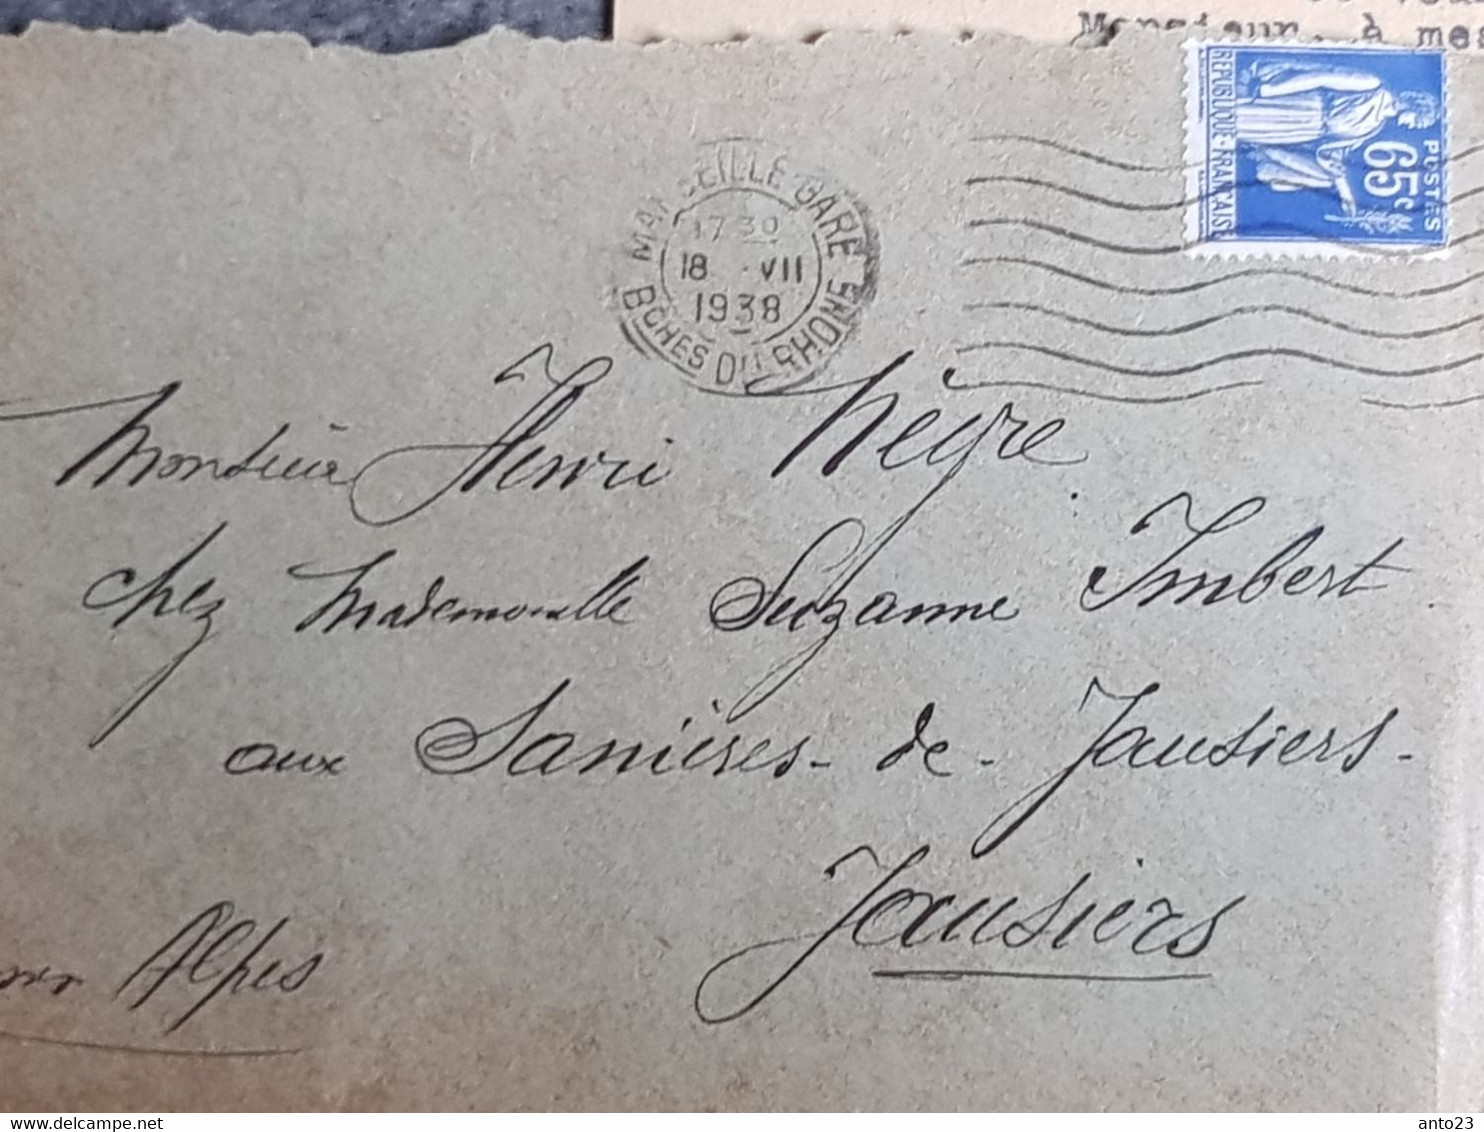 Monsieur, à mes
RÉPUBLIQUE FRANÇAISE
65c
POSTES
MARSEILLE GARE
17 30
18 VII
1938
BCHES DU RHONE
Monsieur Henri Nègre
chez Mademoiselle Suzanne Imbert
aux Sanières-de-Jausiers-
Jausiers
Alpes
anto23